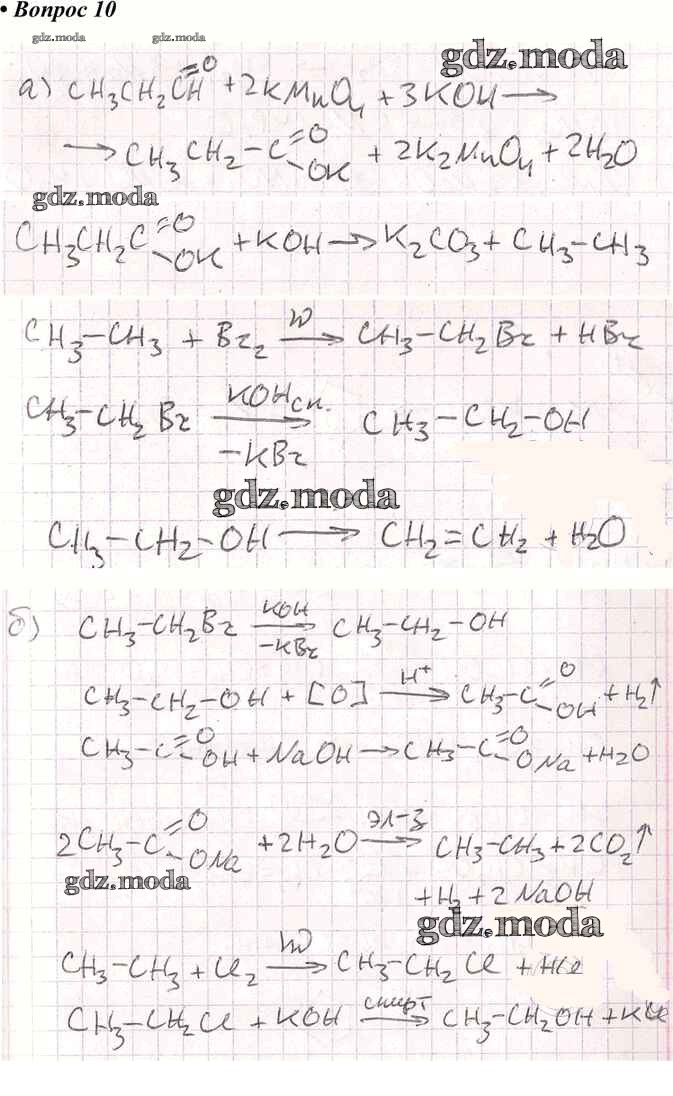 • Вопрос 10
gdz.moda gdz.moda
gdz.moda
а) CH₃CH₂CH=O + 2KMnO₄ + 3KOH ⟶
⟶ CH₃CH₂–C(=O)–OK + 2K₂MnO₄ + 2H₂O
gdz.moda
CH₃CH₂C(=O)–OK + KOH → K₂CO₃ + CH₃–CH₃
CH₃–CH₃ + Br₂ –hν→ CH₃–CH₂Br + HBr
CH₃–CH₂Br –KOH сп. / –KBr→ CH₃–CH₂–OH
gdz.moda
CH₃–CH₂–OH ⟶ CH₂=CH₂ + H₂O
б) CH₃–CH₂Br –KOH / –KBr→ CH₃–CH₂–OH
CH₃–CH₂–OH + [O] –H⁺→ CH₃–C(=O)–OH + H₂↑
CH₃–C(=O)–OH + NaOH → CH₃–C(=O)–ONa + H₂O
2CH₃–C(=O)–ONa + 2H₂O –эл-з→ CH₃–CH₃ + 2CO₂↑
gdz.moda
+ H₂ + 2NaOH
gdz.moda
CH₃–CH₃ + Cl₂ –hν→ CH₃–CH₂Cl + HCl
CH₃–CH₂Cl + KOH –спирт→ CH₃–CH₂OH + KCl